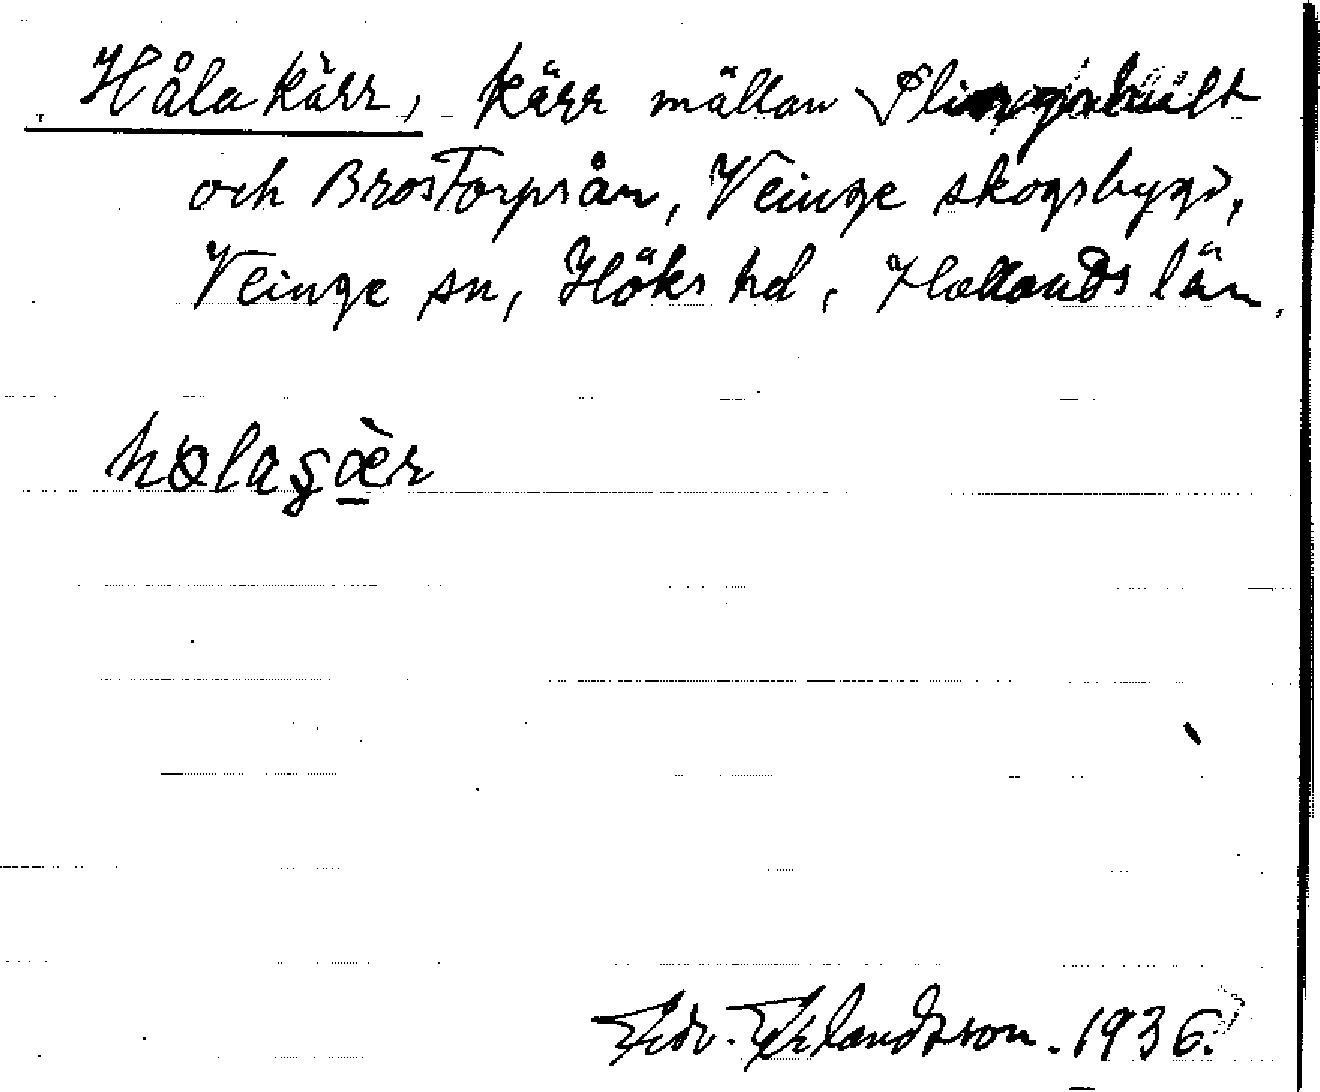 Håla kärr, kärr mällan
och Brostorpsån, Veinge skogsbygd,
Veinge sn, Höks hd, Hallands län.
Edv. Erlandsson. 1936.